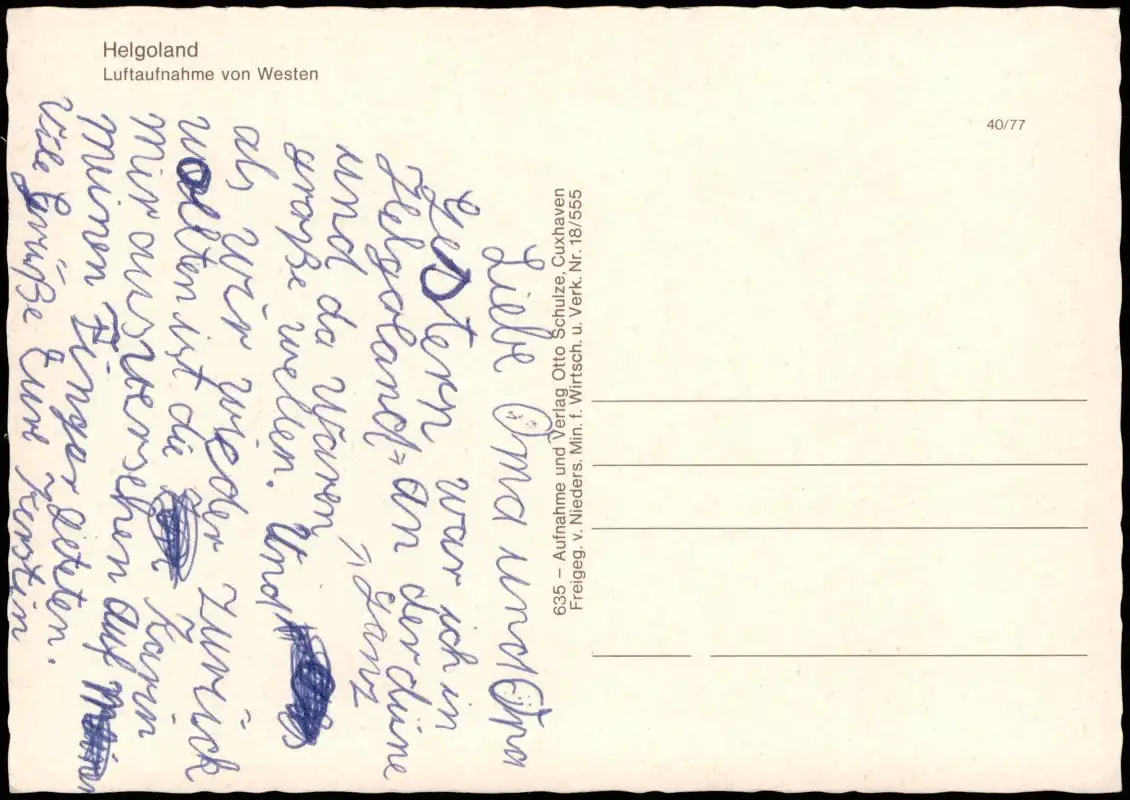 Helgoland
Luftaufnahme von Westen
40/77
635 – Aufnahme und Verlag Otto Schulze, Cuxhaven
Freigeg. v. Nieders. Min. f. Wirtsch. u. Verk. Nr. 18/555
Liebe Oma und Opa
Gestern war ich in
Helgoland = an der düne
und da waren ganz
große wellen. Und
als wir wieder zurück
wolten ist die Karin
mir ausversehen auf
Meinen Finger
Viele Grüße Eure Kerstin